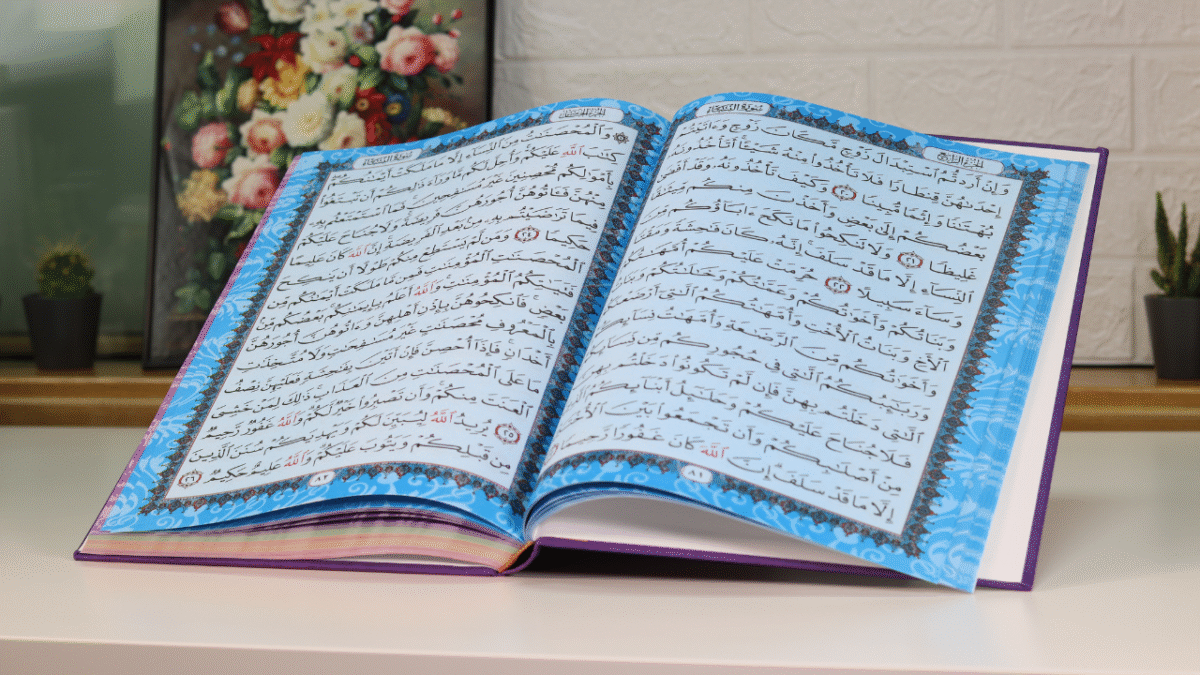 سُورَةُ النِّسَاءِ
الجُزْءُ الرَّابِعُ
وَإِنْ أَرَدتُّمُ ٱسْتِبْدَالَ زَوْجٍ مَّكَانَ زَوْجٍ وَءَاتَيْتُمْ
إِحْدَىٰهُنَّ قِنطَارًا فَلَا تَأْخُذُوا۟ مِنْهُ شَيْـًٔا أَتَأْخُذُونَهُۥ
بُهْتَٰنًا وَإِثْمًا مُّبِينًا ٢٠ وَكَيْفَ تَأْخُذُونَهُۥ وَقَدْ أَفْضَىٰ
بَعْضُكُمْ إِلَىٰ بَعْضٍ وَأَخَذْنَ مِنكُم مِّيثَٰقًا
غَلِيظًا ٢١ وَلَا تَنكِحُوا۟ مَا نَكَحَ ءَابَآؤُكُم مِّنَ
ٱلنِّسَآءِ إِلَّا مَا قَدْ سَلَفَ إِنَّهُۥ كَانَ فَٰحِشَةً وَمَقْتًا
وَسَآءَ سَبِيلًا ٢٢ حُرِّمَتْ عَلَيْكُمْ أُمَّهَٰتُكُمْ
وَبَنَاتُكُمْ وَأَخَوَٰتُكُمْ وَعَمَّٰتُكُمْ وَخَٰلَٰتُكُمْ وَبَنَاتُ
ٱلْأَخِ وَبَنَاتُ ٱلْأُخْتِ وَأُمَّهَٰتُكُمُ ٱلَّٰتِىٓ أَرْضَعْنَكُمْ
وَأَخَوَٰتُكُم مِّنَ ٱلرَّضَٰعَةِ وَأُمَّهَٰتُ نِسَآئِكُمْ
وَرَبَٰٓئِبُكُمُ ٱلَّٰتِى فِى حُجُورِكُم مِّن نِّسَآئِكُمُ
ٱلَّٰتِى دَخَلْتُم بِهِنَّ فَإِن لَّمْ تَكُونُوا۟ دَخَلْتُم بِهِنَّ
فَلَا جُنَاحَ عَلَيْكُمْ وَحَلَٰٓئِلُ أَبْنَآئِكُمُ ٱلَّذِينَ
مِنْ أَصْلَٰبِكُمْ وَأَن تَجْمَعُوا۟ بَيْنَ ٱلْأُخْتَيْنِ
إِلَّا مَا قَدْ سَلَفَ إِنَّ ٱللَّهَ كَانَ غَفُورًا رَّحِيمًا
٨١
سُورَةُ النِّسَاءِ
وَٱلْمُحْصَنَٰتُ مِنَ ٱلنِّسَآءِ إِلَّا مَا مَلَكَتْ أَيْمَٰنُكُمْ
كِتَٰبَ ٱللَّهِ عَلَيْكُمْ وَأُحِلَّ لَكُم مَّا وَرَآءَ ذَٰلِكُمْ أَن تَبْتَغُوا۟
بِأَمْوَٰلِكُم مُّحْصِنِينَ غَيْرَ مُسَٰفِحِينَ فَمَا ٱسْتَمْتَعْتُم بِهِۦ
مِنْهُنَّ فَـَٔاتُوهُنَّ أُجُورَهُنَّ فَرِيضَةً وَلَا جُنَاحَ عَلَيْكُمْ
فِيمَا تَرَٰضَيْتُم بِهِۦ مِنۢ بَعْدِ ٱلْفَرِيضَةِ إِنَّ ٱللَّهَ كَانَ عَلِيمًا
حَكِيمًا ٢٤ وَمَن لَّمْ يَسْتَطِعْ مِنكُمْ طَوْلًا أَن يَنكِحَ
ٱلْمُحْصَنَٰتِ ٱلْمُؤْمِنَٰتِ فَمِن مَّا مَلَكَتْ أَيْمَٰنُكُم مِّن
فَتَيَٰتِكُمُ ٱلْمُؤْمِنَٰتِ وَٱللَّهُ أَعْلَمُ بِإِيمَٰنِكُم بَعْضُكُم مِّنۢ
بَعْضٍ فَٱنكِحُوهُنَّ بِإِذْنِ أَهْلِهِنَّ وَءَاتُوهُنَّ أُجُورَهُنَّ
بِٱلْمَعْرُوفِ مُحْصَنَٰتٍ غَيْرَ مُسَٰفِحَٰتٍ وَلَا مُتَّخِذَٰتِ
أَخْدَانٍ فَإِذَآ أُحْصِنَّ فَإِنْ أَتَيْنَ بِفَٰحِشَةٍ فَعَلَيْهِنَّ نِصْفُ
مَا عَلَى ٱلْمُحْصَنَٰتِ مِنَ ٱلْعَذَابِ ذَٰلِكَ لِمَنْ خَشِىَ
ٱلْعَنَتَ مِنكُمْ وَأَن تَصْبِرُوا۟ خَيْرٌ لَّكُمْ وَٱللَّهُ غَفُورٌ رَّحِيمٌ
٢٥ يُرِيدُ ٱللَّهُ لِيُبَيِّنَ لَكُمْ وَيَهْدِيَكُمْ سُنَنَ ٱلَّذِينَ
مِن قَبْلِكُمْ وَيَتُوبَ عَلَيْكُمْ وَٱللَّهُ عَلِيمٌ حَكِيمٌ ٢٦
٨٢